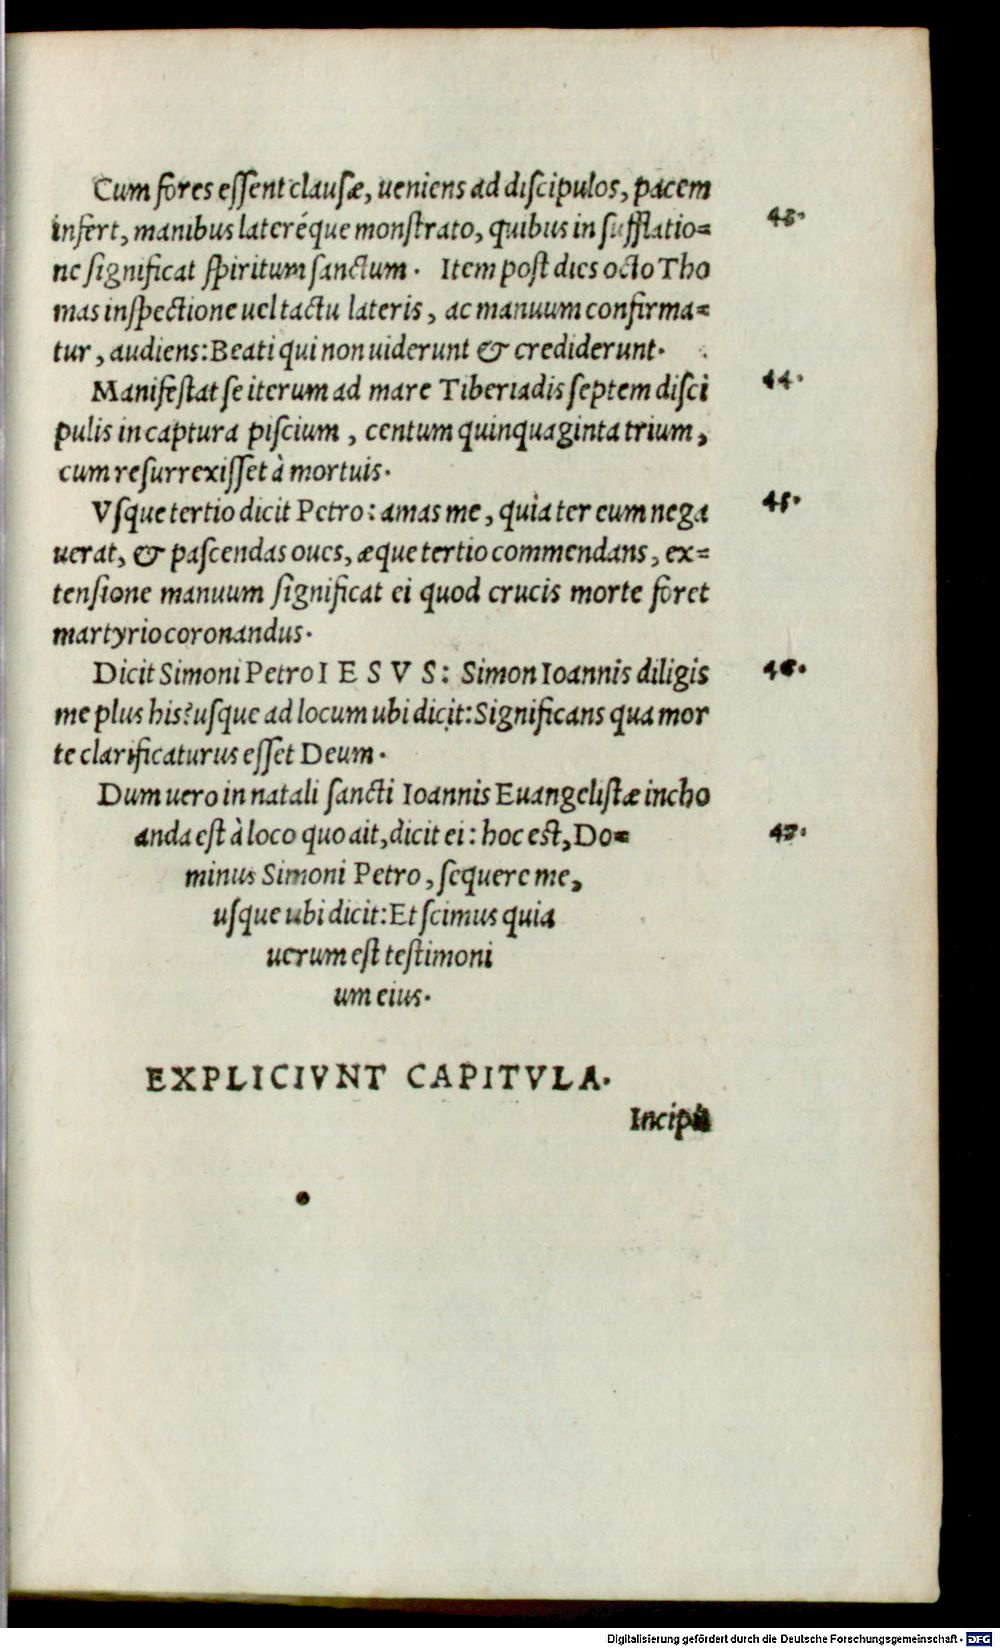 Cum fores essent clausæ, ueniens ad discipulos, pacem
insert, manibus lateréque monstrato, quibus in sufflatio= 43.
ne significat spiritum sanctum. Item post dies octo Tho
mas inspectione uel tactu lateris, ac manuum confirma=
tur, audiens: Beati qui non uiderunt & crediderunt.
Manifestat se iterum ad mare Tiberiadis septem disci 44.
pulis in captura piscium, centum quinquaginta trium,
cum resurrexisset à mortuis.
Vsque tertio dicit Petro: amas me, quia ter eum nega 45.
uerat, & pascendas oues, æque tertio commendans, ex=
tensione manuum significat ei quod crucis morte foret
martyrio coronandus.
Dicit Simoni Petro I E S V S: Simon Ioannis diligis 46.
me plus his? usque ad locum ubi dicit: Significans qua mor
te clarificaturus esset Deum.
Dum uero in natali sancti Ioannis Euangelistæ incho
anda est à loco quo ait, dicit ei: hoc est, Do= 47.
minus Simoni Petro, sequere me,
usque ubi dicit: Et scimus quia
uerum est testimoni
um eius.
EXPLICIVNT CAPITVLA.
Incipit
Digitalisierung gefördert durch die Deutsche Forschungsgemeinschaft - DFG